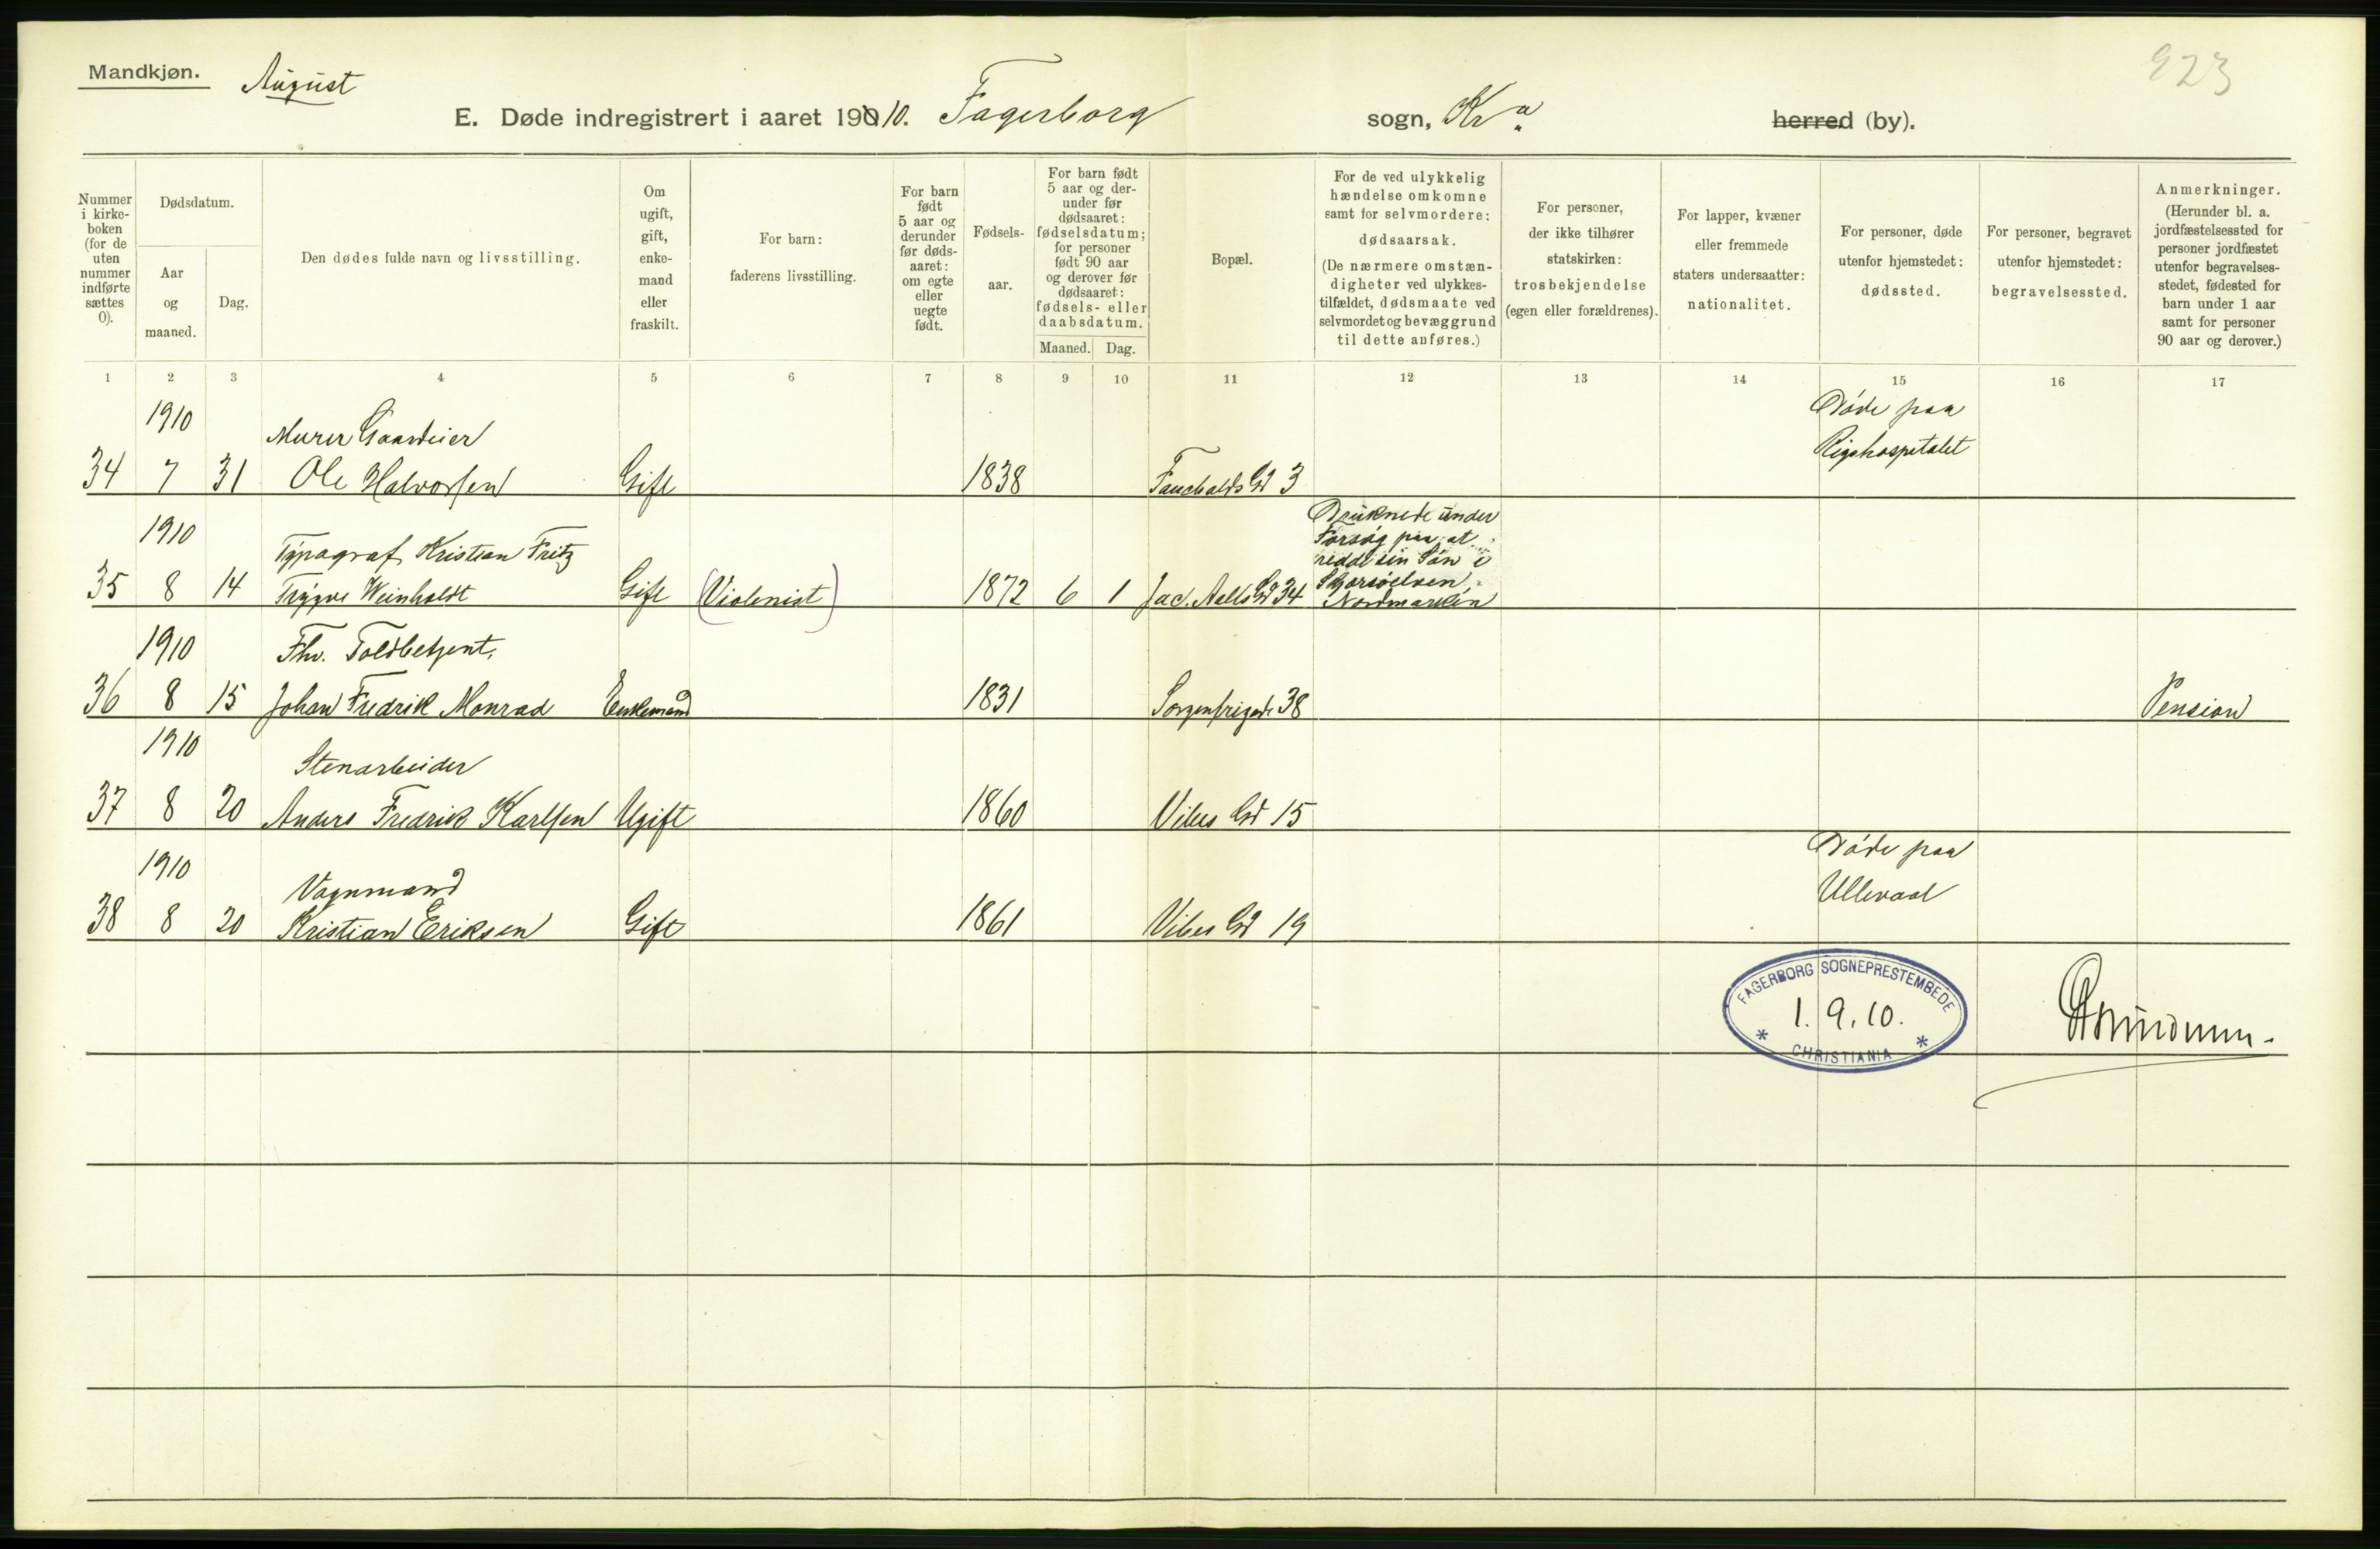 Mandkjøn.
August
923
E. Døde indregistrert i aaret 1910. Fagerborg sogn, Kra. herred (by).
Nummer i kirke-boken (for de uten nummer indførte sættes 0).
Dødsdatum.
Aar og maaned.
Dag.
Den dødes fulde navn og livsstilling.
Om ugift, gift, enke-mand eller fraskilt.
For barn: faderens livsstilling.
For barn født 5 aar og derunder før døds-aaret: om egte eller uegte født.
Fødsels-aar.
For barn født 5 aar og der-under før dødsaaret: fødselsdatum; for personer født 90 aar og derover før dødsaaret: fødsels- eller daabsdatum.
Maaned. Dag.
Bopæl.
For de ved ulykkelig hændelse omkomne samt for selvmordere: dødsaarsak. (De nærmere omstæn-digheter ved ulykkes-tilfældet, dødsmaate ved selvmordet og bevæggrund til dette anføres.)
For personer, der ikke tilhører statskirken: trosbekjendelse (egen eller forældrenes).
For lapper, kvæner eller fremmede staters undersaatter: nationalitet.
For personer, døde utenfor hjemstedet: dødssted.
For personer, begravet utenfor hjemstedet: begravelsessted.
Anmerkninger. (Herunder bl. a. jordfæstelsessted for personer jordfæstet utenfor begravelses-stedet, fødested for barn under 1 aar samt for personer 90 aar og derover.)
1 2 3 4 5 6 7 8 9 10 11 12 13 14 15 16 17
1910 Murer Gaardeier Døde paa Rigshospitalet
34 7 31 Ole Halvorsen Gift 1838 Fauchalds Gd 3
1910 Typograf Kristian Fritz Druknede under Forsøg paa at redde sin Søn i
35 8 14 Trygve Weinholdt Gift (Violinist) 1872 6 1 Jac. Aalls Gd 34 Nordmarken
1910 Fhv. Toldbetjent.
36 8 15 Johan Fredrik Monrad Enkemand 1831 Sorgenfrigade 38 Pension
1910 Stenarbeider
37 8 20 Anders Fredrik Karlsen Ugift 1860 Vibes Gd 15
1910 Vognmand Døde paa Ullevaal
38 8 20 Kristian Eriksen Gift 1861 Vibes Gd 19
FAGERBORG SOGNEPRESTEMBEDE
1. 9. 10.
* CHRISTIANIA *